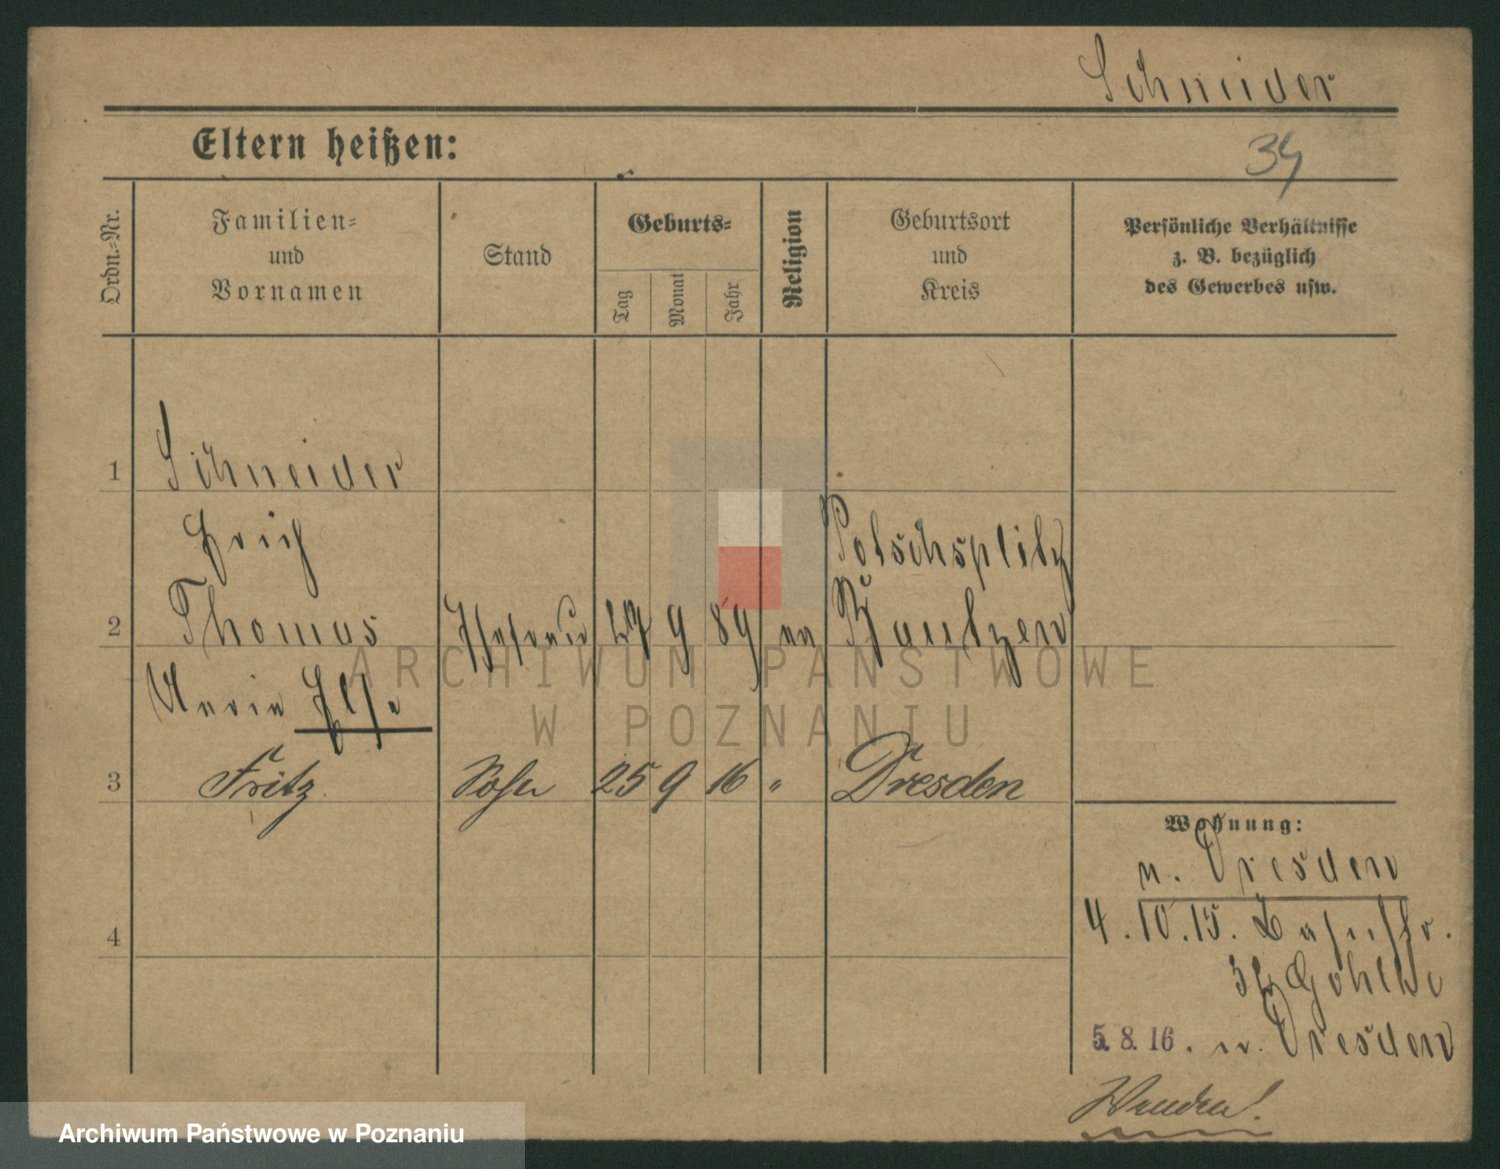 Schneider
Eltern heißen:
34
Ordn.-Nr.
Familien-
und
Vornamen
Stand
Geburts-
Tag
Monat
Jahr
Religion
Geburtsort
und
Kreis
Persönliche Verhältnisse
z. B. bezüglich
des Gewerbes usw.
1
Schneider
Erich
2
Thomas Ehefrau 27 9 89
Bautzen
Maria Else
3
Fritz Sohn 25 9 16 " Dresden
4
Wohnung:
n. Dresden
4.10.15.
5.8.16. n. Dresden
Wenden!
ARCHIWUM PAŃSTWOWE
W POZNANIU
Archiwum Państwowe w Poznaniu